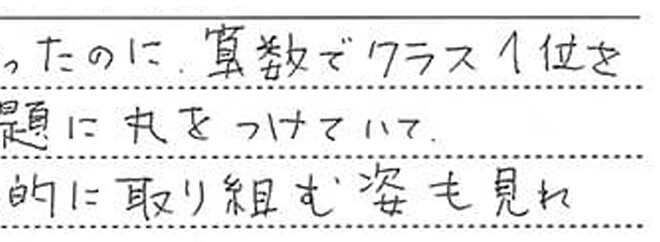 ったのに、算数でクラス1位を
題に丸をつけていて、
的に取り組む姿も見れ